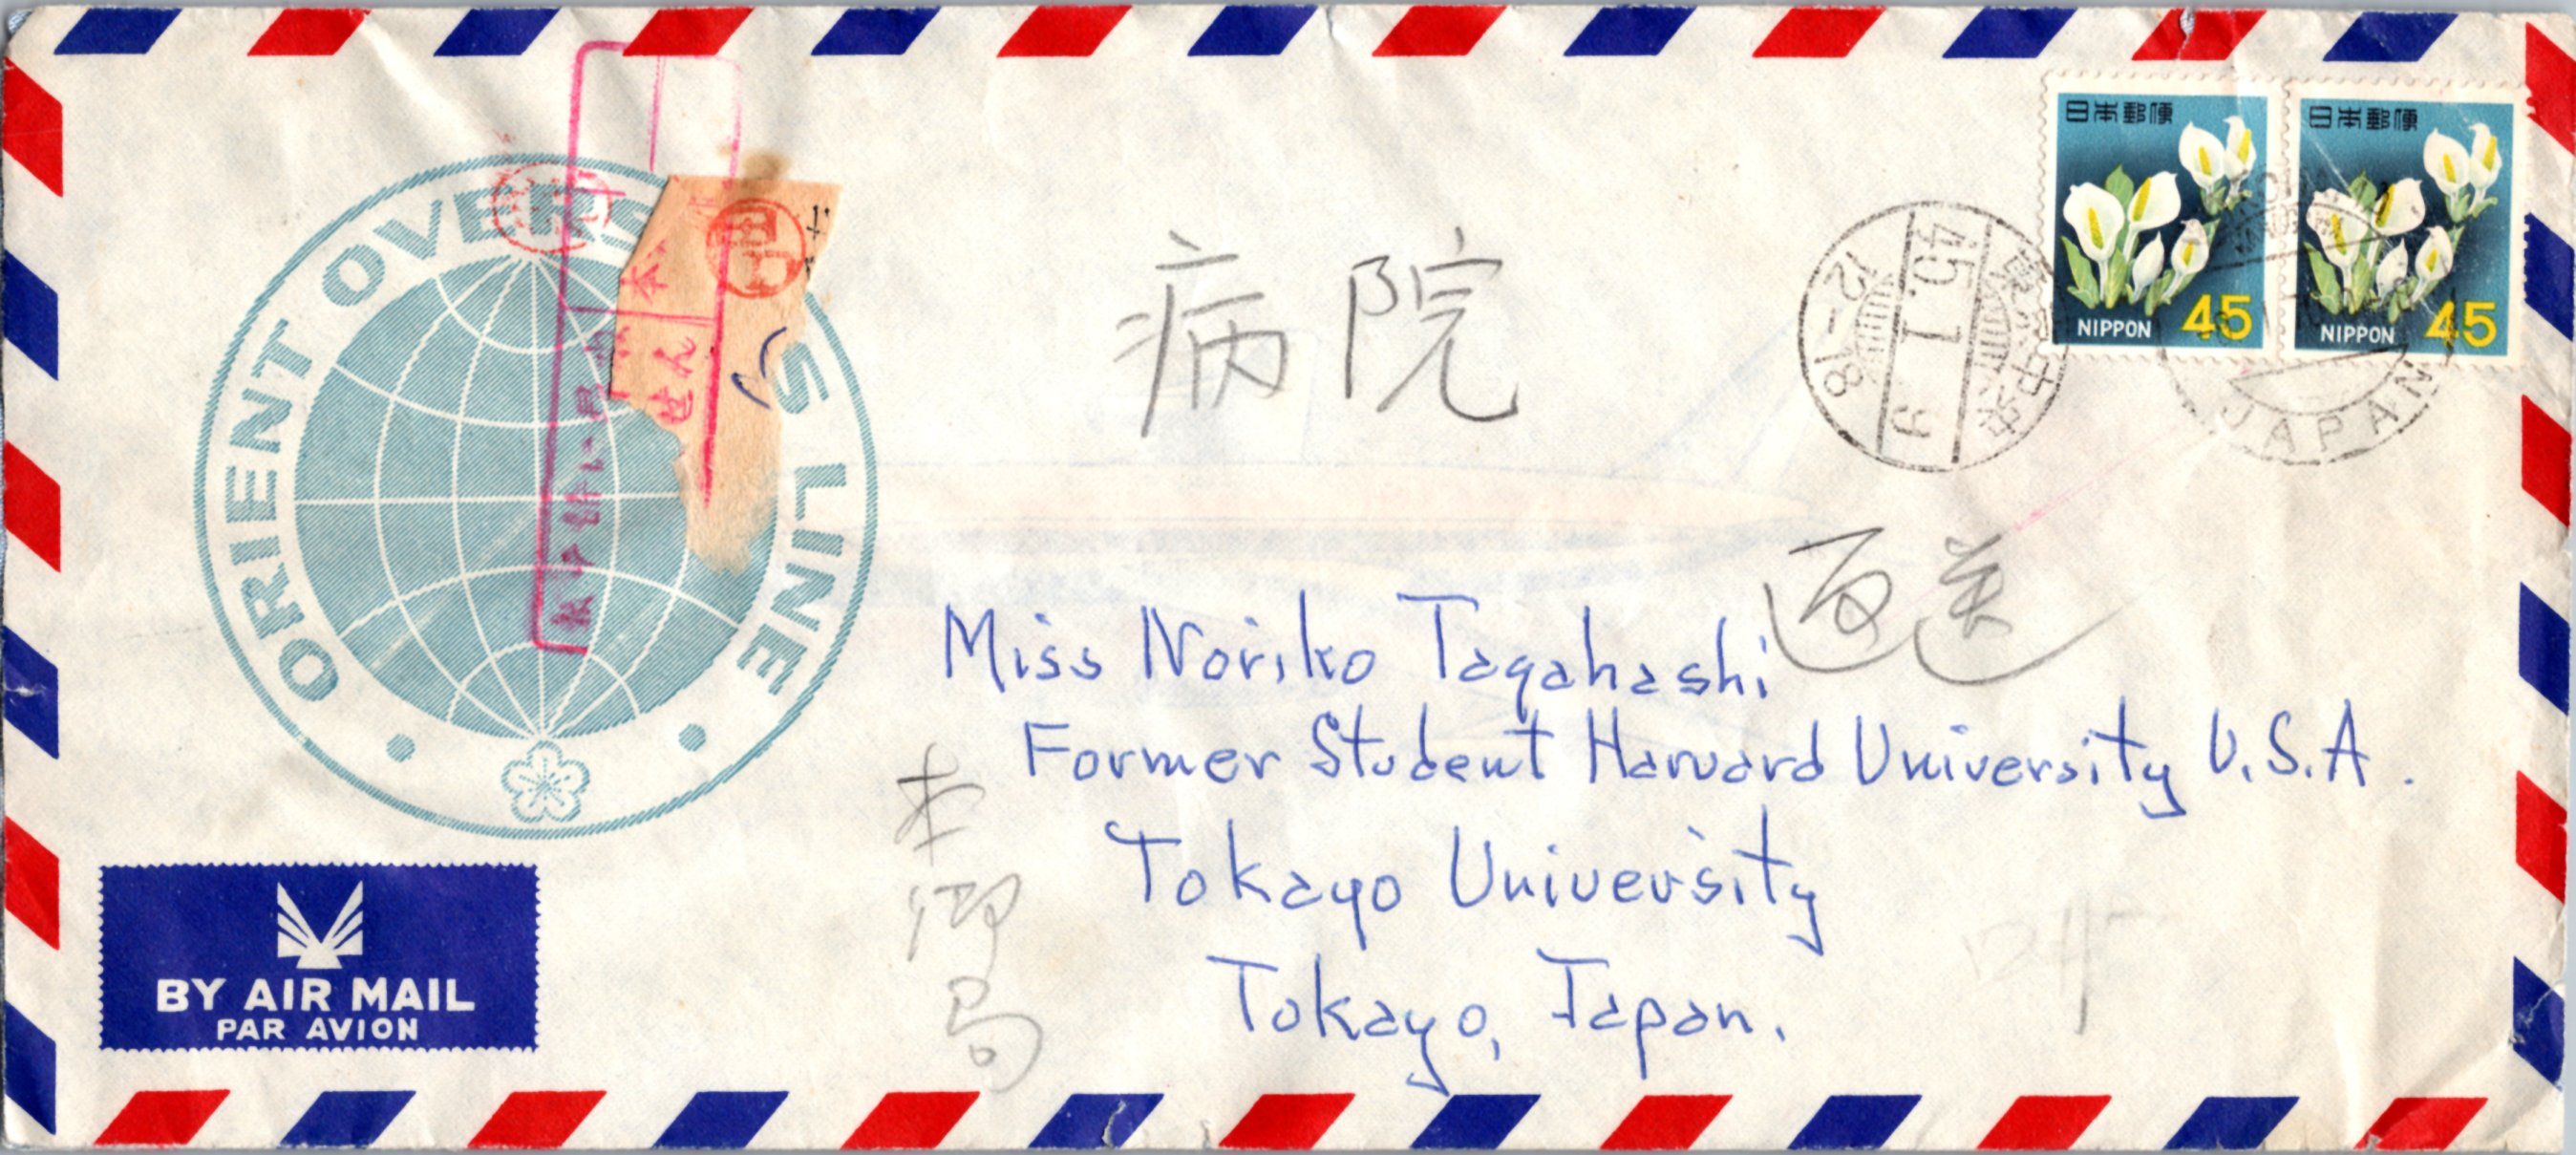 ORIENT OVERS S LINE
日本郵便
NIPPON 45
日本郵便
NIPPON 45
東京中央
45.1.9
12-18
JAPAN
病院
返送
Miss Noriko Taqahashi
Former Student Harvard University U.S.A.
Tokayo University
Tokayo, Japan.
本郷局
BY AIR MAIL
PAR AVION